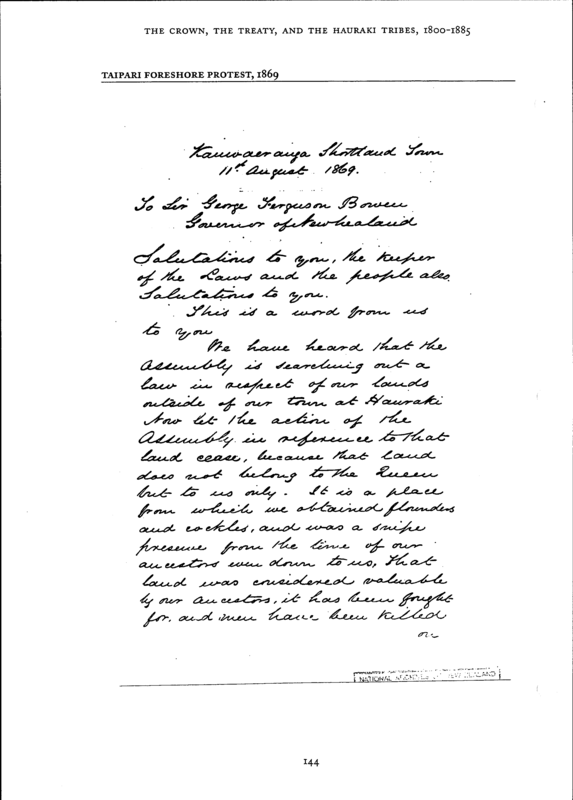 THE CROWN, THE TREATY, AND THE HAURAKI TRIBES, 1800-1885
TAIPARI FORESHORE PROTEST, 1869
Kauwaeranga Shortland Town
11th August 1869.
To Sir George Ferguson Bowen
Governor of New Zealand
Salutations to you, the keeper
of the Laws and the people also.
Salutations to you.
This is a word from us
to you
We have heard that the
Assembly is searching out a
law in respect of our lands
outside of our town at Hauraki
Now let the action of the
Assembly in reference to that
land cease, because that land
does not belong to the Queen
but to us only. It is a place
from which we obtained flounders
and cockles, and was a snipe
preserve from the time of our
ancestors even down to us, that
land was considered valuable
by our ancestors, it has been fought
for, and men have been killed
on
NATIONAL ARCHIVES OF NEW ZEALAND
144